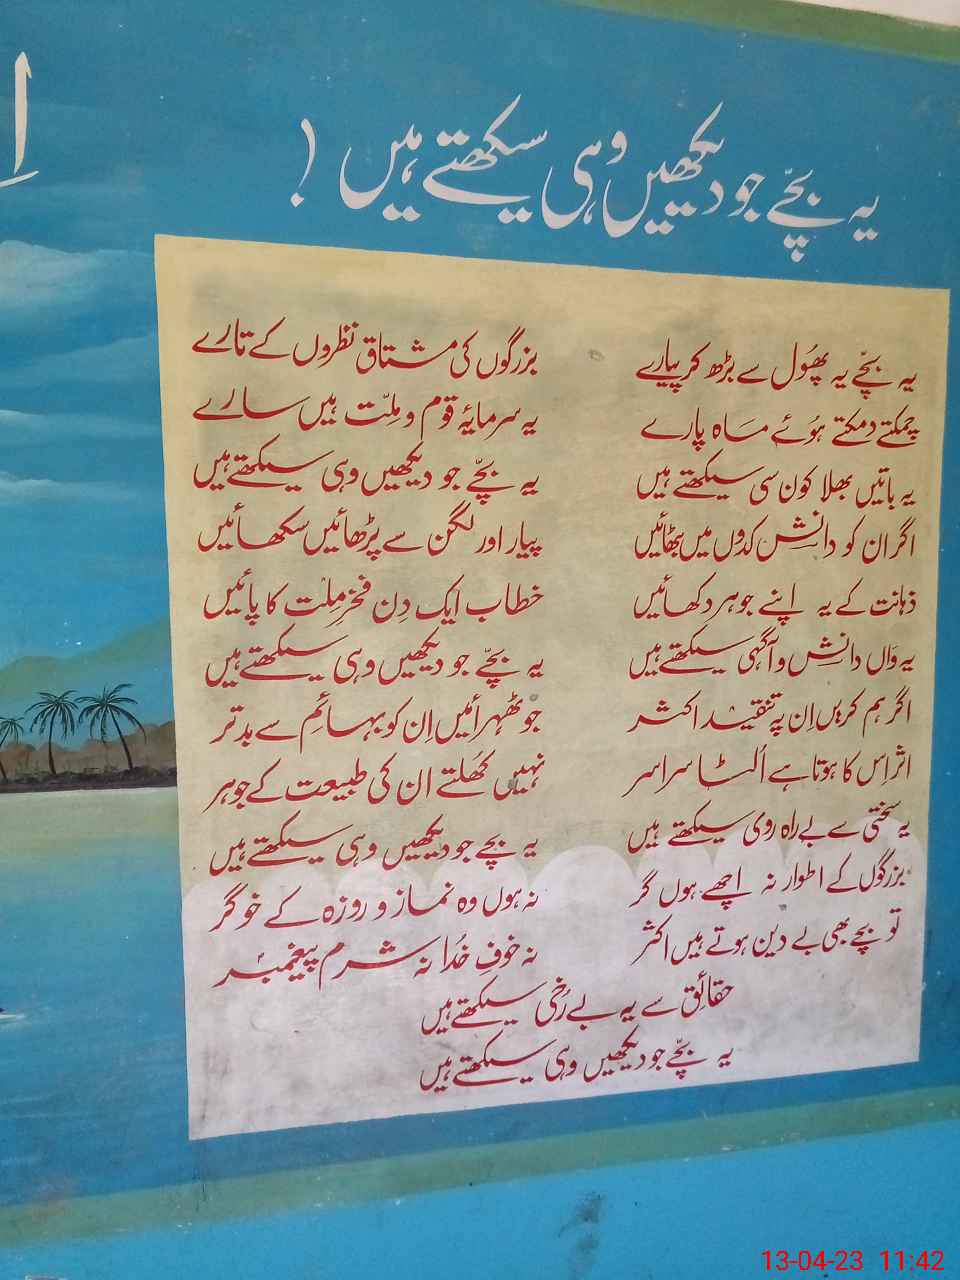 یہ بچّے جو دیکھیں وہی سیکھتے ہیں !
یہ بچّے یہ پھُول سے بڑھ کر پیارے
بزرگوں کی مشتاق نظروں کے تارے
چمکتے دمکتے ہوُئے ماہ پارے
یہ سرمایۂ قوم و مِلّت ہیں سارے
یہ باتیں بھلا کون سی سیکھتے ہیں
یہ بچّے جو دیکھیں وہی سیکھتے ہیں
اگر ان کو دانش کدوں میں بٹھائیں
پیار اور لگن سے پڑھائیں سکھائیں
ذہانت کے یہ اپنے جوہر دکھائیں
خطاب ایک دِن فخرِ مِلت کا پائیں
یہ واں دانش و آگہی سیکھتے ہیں
یہ بچّے جو دیکھیں وہی سیکھتے ہیں
اگر ہم کریں اِن پہ تنقید اکثر
جو ٹھہرائیں اِن کو بہائم سے بدتر
اثر اِس کا ہوتا ہے اُلٹا سراسر
نہیں کُھلتے ان کی طبیعت کے جوہر
یہ سختی سے بے راہ روی سیکھتے ہیں
یہ بچے جو دیکھیں وہی سیکھتے ہیں
بزرگوں کے اطوار نہ اچھے ہوں گر
نہ ہوں وہ نماز و روزہ کے خوگر
تو بچے بھی بے دین ہوتے ہیں اکثر
نہ خوفِ خُدا نہ شرم پیغمبر
حقائق سے یہ بے رُخی سیکھتے ہیں
یہ بچّے جو دیکھیں وہی سیکھتے ہیں
13-04-23 11:42